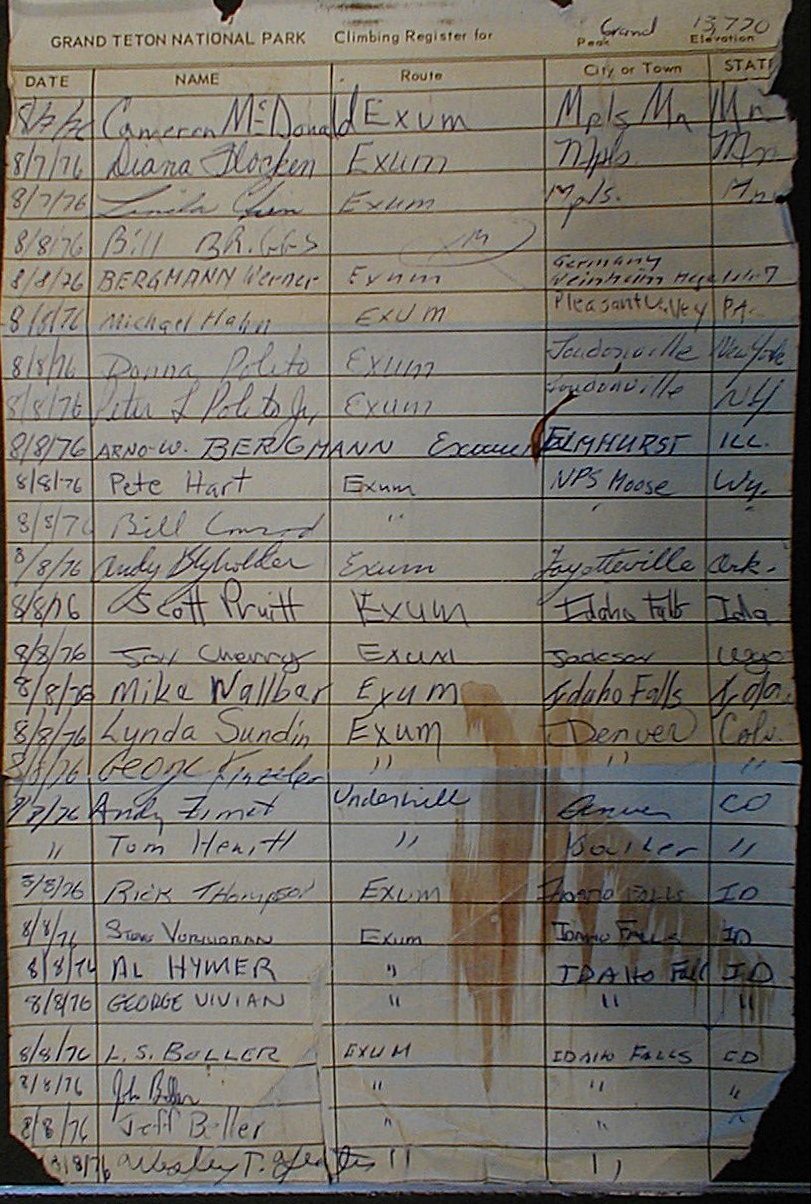 GRAND TETON NATIONAL PARK Climbing Register for Grand 13,770
Peak Elevation
DATE NAME Route City or Town STATE
8/7/76 Cameron McDonald Exum Mpls Mn Mn
8/7/76 Diana Exum Mpls. Mn
8/7/76 Linda Exum Mpls. Mn
8/8/76 Bill BRIGGS
8/8/76 BERGMANN Werner Exum Germany Weinheim
8/8/76 Michael Hahn EXUM Pleasant Valley PA.
8/8/76 Donna Polito Exum Loudonville New York
8/8/76 Peter L Polito Jr, Exum Loudonville NY
8/8/76 ARNO-W. BERGMANN Exum ELMHURST ILL.
8/8/76 Pete Hart Exum NPS Moose Wy.
8/8/76 Bill Conrod " " "
8/8/76 Andy Blyholder Exum Fayetteville Ark.
8/8/76 Scott Pruitt Exum Idaho Falls Ida
8/8/76 Cherry Exum Jackson Wyo
8/8/76 Mike Wallbar Exum Idaho Falls Ida.
8/8/76 Lynda Sundin Exum Denver Colo.
8/8/76 George " " "
8/7/76 Andy Zimet Underhill CO
" Tom " Boulder "
8/8/76 RICK THOMPSON EXUM IDAHO FALLS ID
8/8/76 Exum IDAHO FALLS ID
8/8/76 AL HYMER " IDAHO Fall ID
8/8/76 GEORGE VIVIAN " " "
8/8/76 L.S. BOLLER EXUM IDAHO FALLS ID
8/8/76 John " " "
8/8/76 Jeff Boller " " "
8/8/76 Wesley T. " "